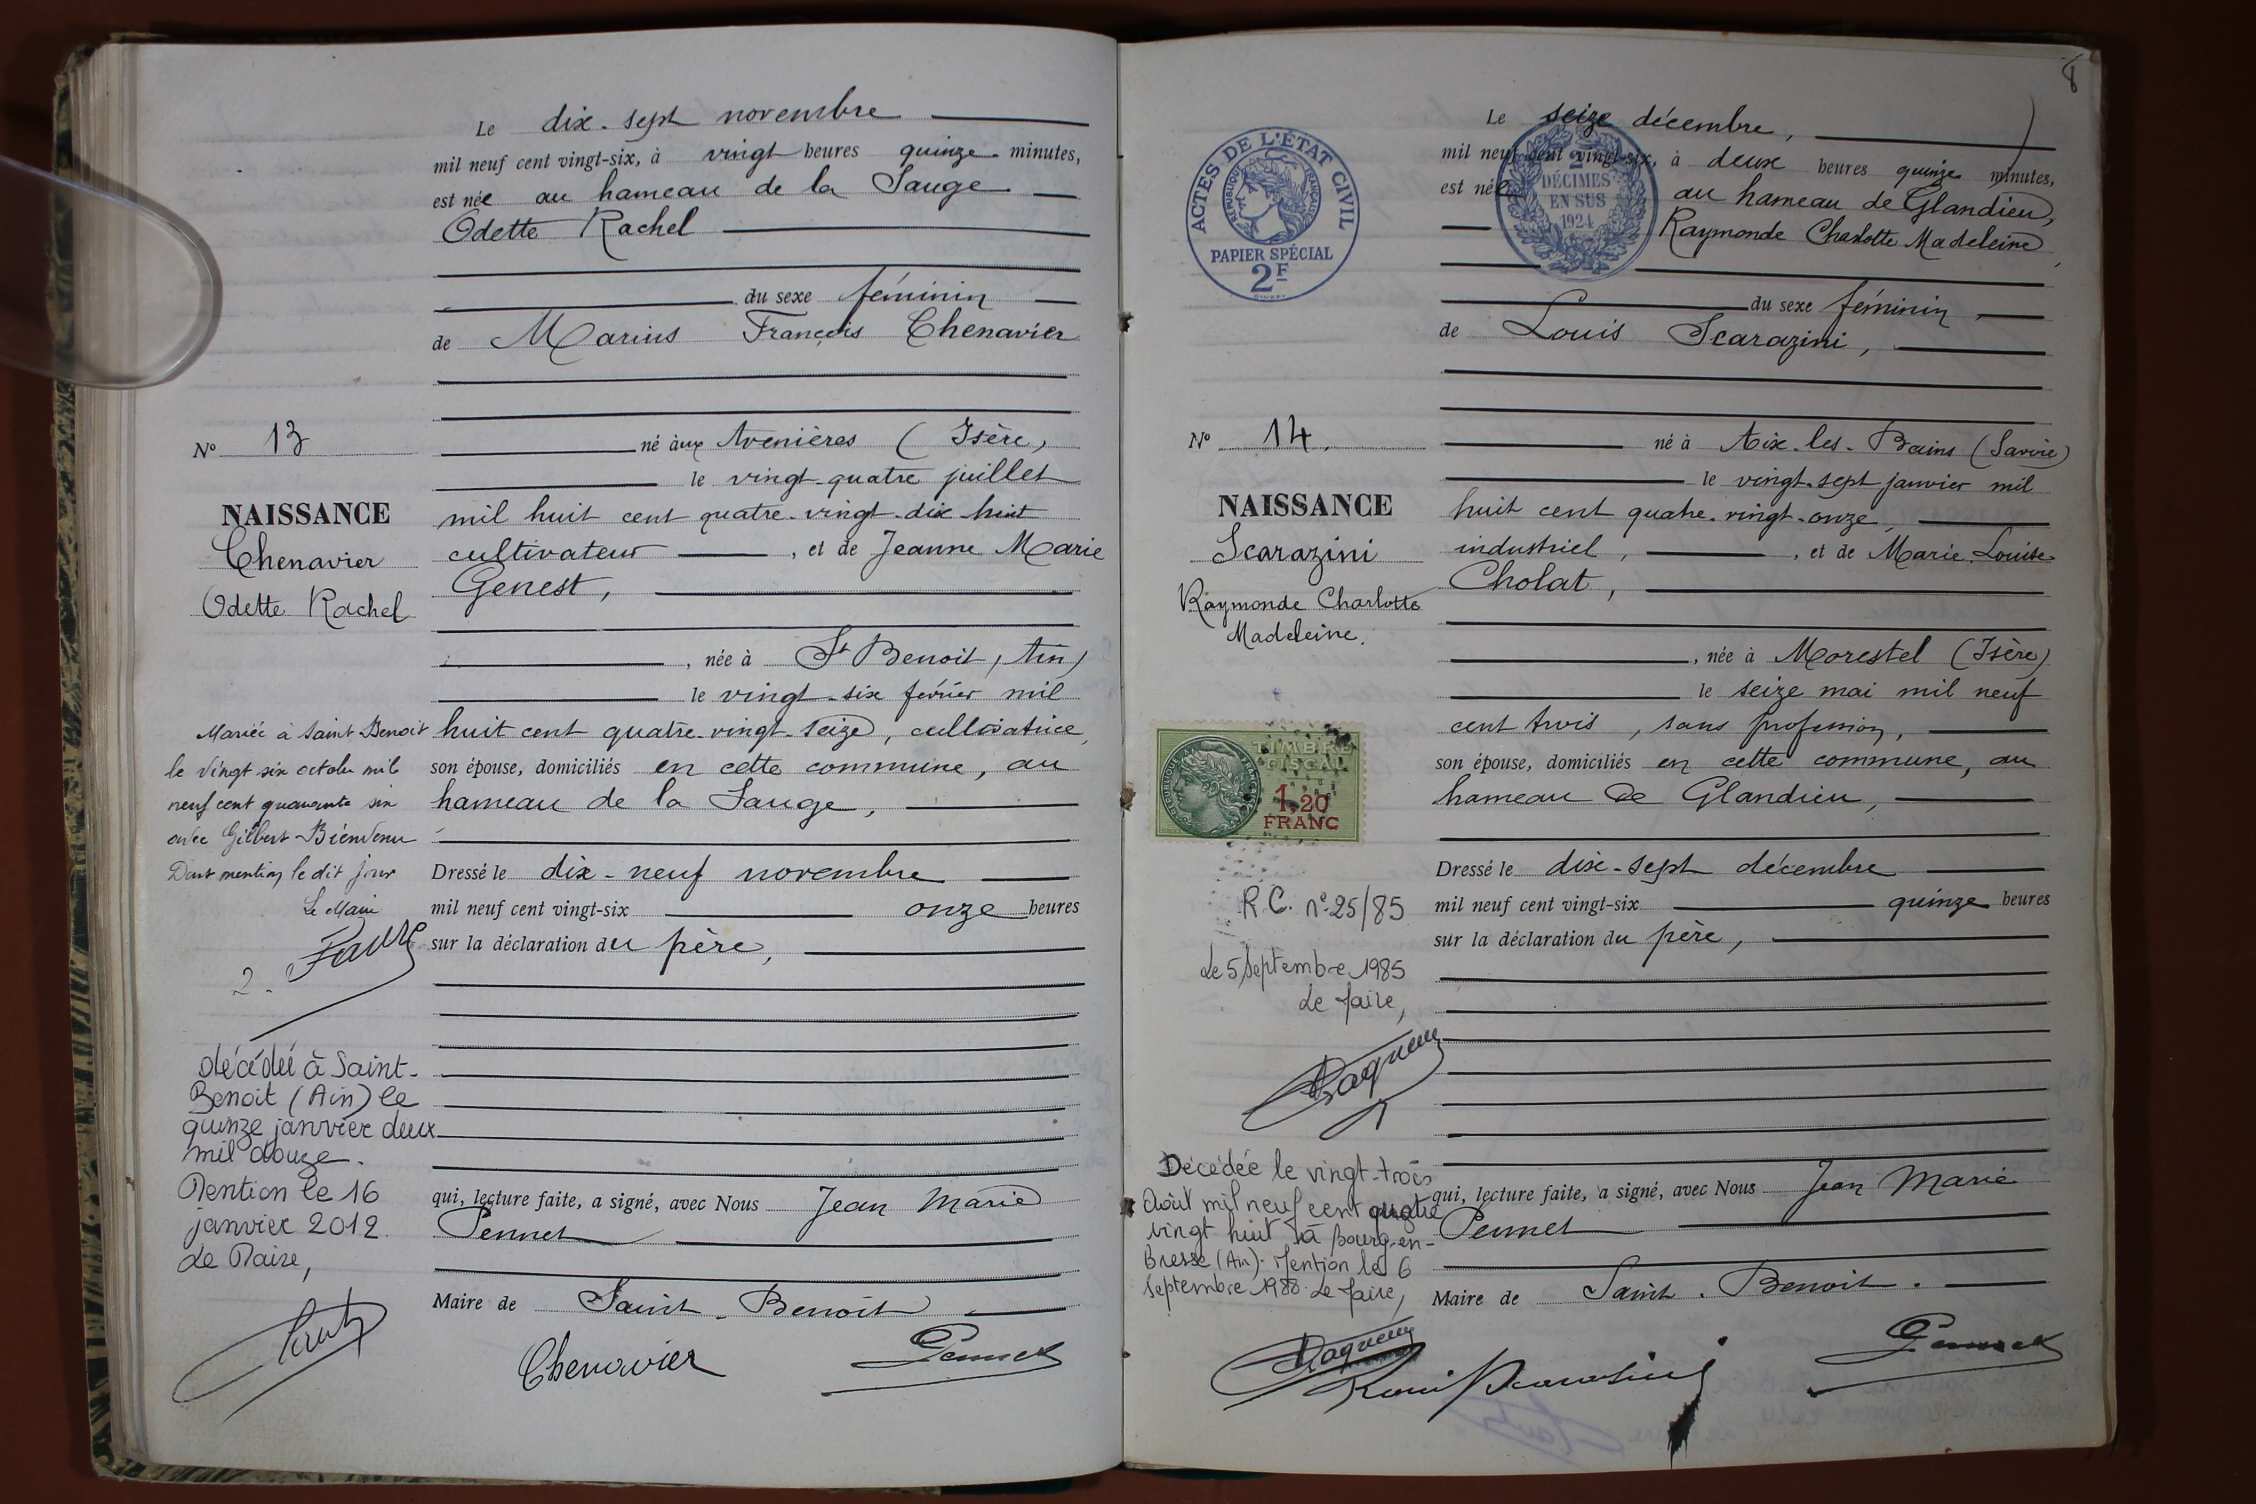 Le dix-sept novembre
mil neuf cent vingt-six, à vingt heures quinze minutes,
est née au hameau de la Sauge
Odette Rachel
du sexe féminin
de Marius François Chenavier
né aux Avenières (Isère)
le vingt-quatre juillet
mil huit cent quatre-vingt-dix-huit
cultivateur, et de Jeanne Marie
Genest,
née à St Benoit (Ain)
le vingt-six février mil
huit cent quatre-vingt-seize, cultivatrice,
son épouse, domiciliés en cette commune, au
hameau de la Sauge,
Dressé le dix-neuf novembre
mil neuf cent vingt-six onze heures
sur la déclaration du père,
qui, lecture faite, a signé, avec Nous Jean Marie
Pennet
Maire de Saint-Benoit
Chenavier
Pennet
No 13
NAISSANCE
Chenavier
Odette Rachel
Mariée à Saint Benoit
le vingt six octobre mil
neuf cent quarante six
avec Gilbert Bienvenu
Dont mention le dit jour
Le Maire
Faure
2.
décédée à Saint-
Benoit (Ain) le
quinze janvier deux
mil douze.
Mention le 16
janvier 2012.
Le Maire,
8
Le seize décembre,
mil neuf cent vingt-six, à deux heures quinze minutes,
est née au hameau de Glandieu,
Raymonde Charlotte Madeleine,
du sexe féminin,
de Louis Scarazini,
né à Aix-les-Bains (Savoie)
le vingt-sept janvier mil
huit cent quatre-vingt-onze,
industriel, et de Marie Louise
Cholat,
née à Morestel (Isère)
le seize mai mil neuf
cent trois, sans profession,
son épouse, domiciliés en cette commune, au
hameau de Glandieu,
Dressé le dix-sept décembre
mil neuf cent vingt-six quinze heures
sur la déclaration du père,
qui, lecture faite, a signé, avec Nous Jean Marie
Pennet
Maire de Saint-Benoit.
Pennet
ACTES DE L'ÉTAT CIVIL
RÉPUBLIQUE FRANÇAISE
PAPIER SPÉCIAL
2F
2
DÉCIMES
EN SUS
1924
No 14.
NAISSANCE
Scarazini
Raymonde Charlotte
Madeleine.
TIMBRE
FISCAL
1,20
FRANC
R.C. n° 25/85
Le 5 Septembre 1985
Le Maire,
Décédée le vingt-trois
Août mil neuf cent quatre
vingt huit à Bourg-en-
Bresse (Ain). Mention le 6
Septembre 1988. Le Maire,